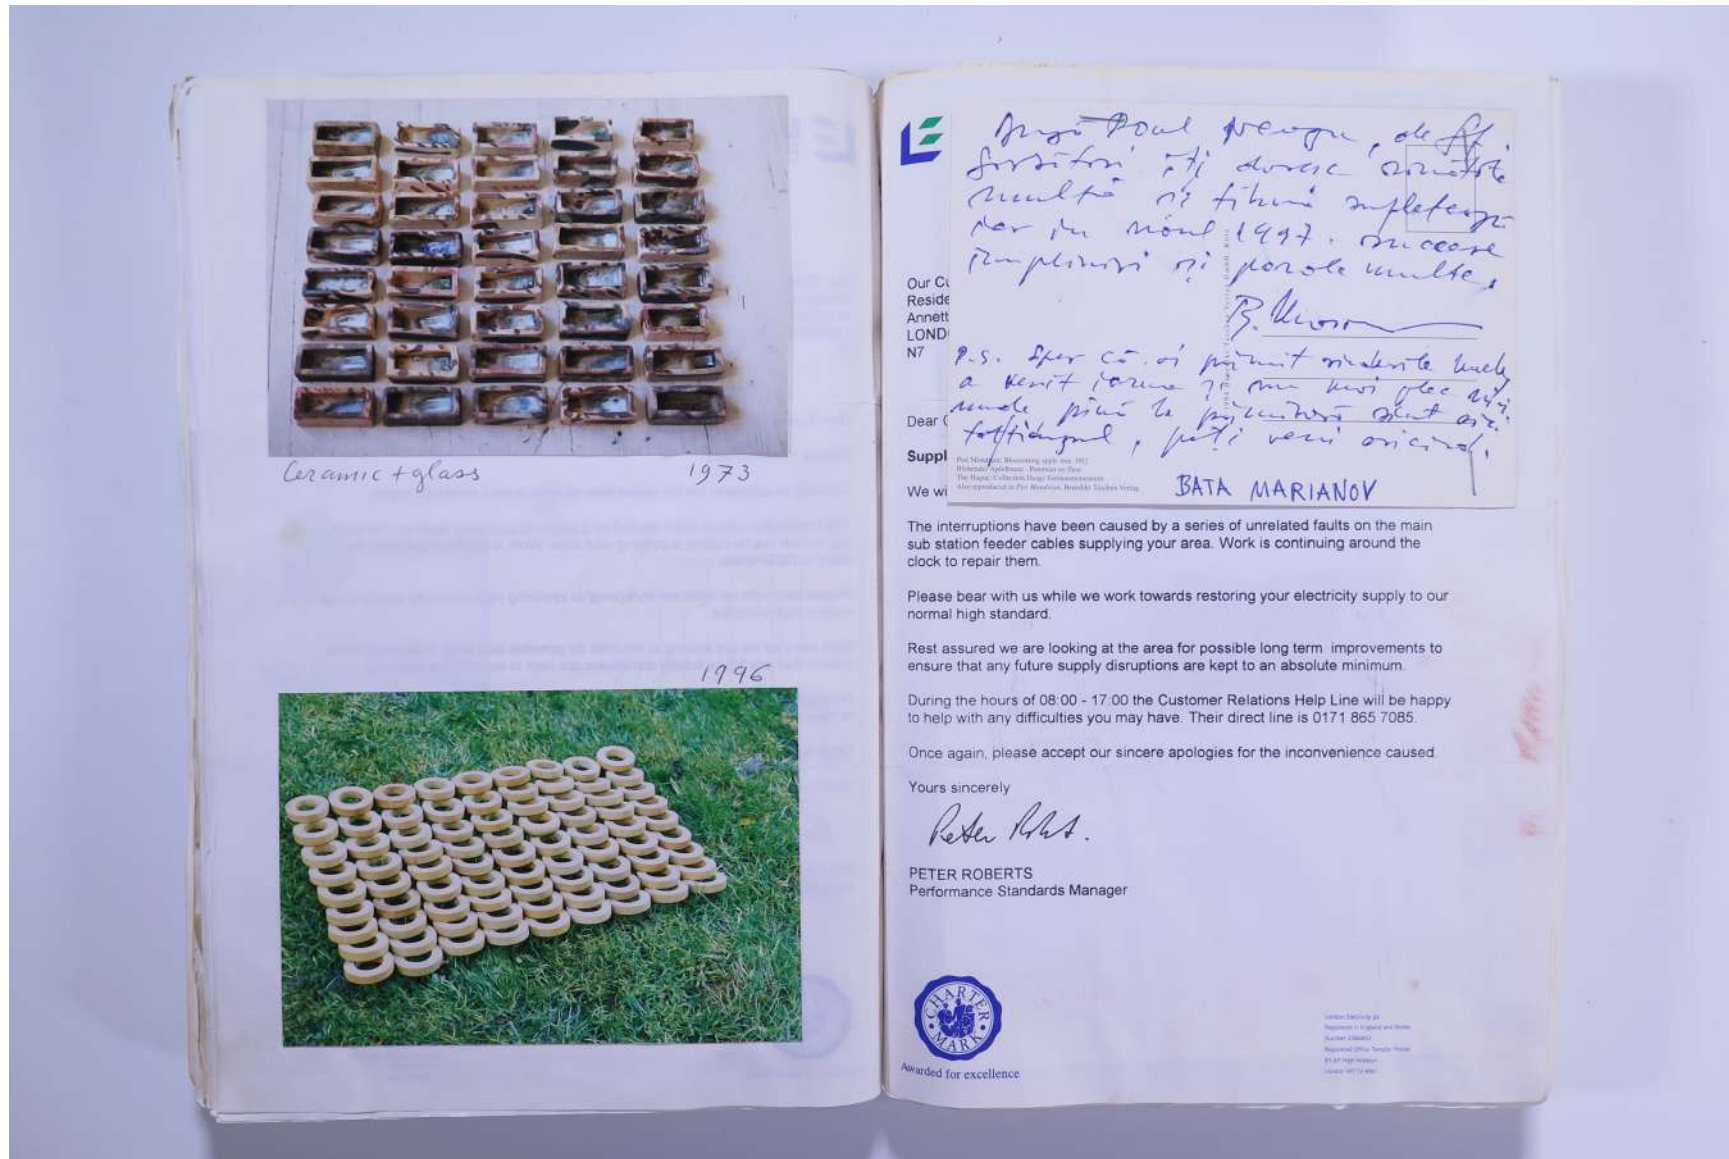 Ceramic + glass 1973
1996
Dragă Paul Neagu, de
îți doresc
multă și tihnă sufletească
iar în noul 1997. succese
împliniri și parale multe.
P.S. Sper că ai primit
a venit iarna și nu mai plec
unde până la primăvară sînt aici
tot timpul, poți veni oricînd.
BATA MARIANOV
Piet Mondrian, Blossoming apple tree, 1912
The Hague, Collection Haags Gemeentemuseum
Also reproduced in Piet Mondrian, Benedikt Taschen Verlag
LE
Our Cu
Reside
Annett
LOND
N7
Dear
Suppl
We wi
The interruptions have been caused by a series of unrelated faults on the main
sub station feeder cables supplying your area. Work is continuing around the
clock to repair them.
Please bear with us while we work towards restoring your electricity supply to our
normal high standard.
Rest assured we are looking at the area for possible long term improvements to
ensure that any future supply disruptions are kept to an absolute minimum.
During the hours of 08:00 - 17:00 the Customer Relations Help Line will be happy
to help with any difficulties you may have. Their direct line is 0171 865 7085.
Once again, please accept our sincere apologies for the inconvenience caused.
Yours sincerely
Peter Roberts
PETER ROBERTS
Performance Standards Manager
CHARTER
MARK
Awarded for excellence
London Electricity plc
Registered in England and Wales
Registered Office Templar House
81-87 High Holborn